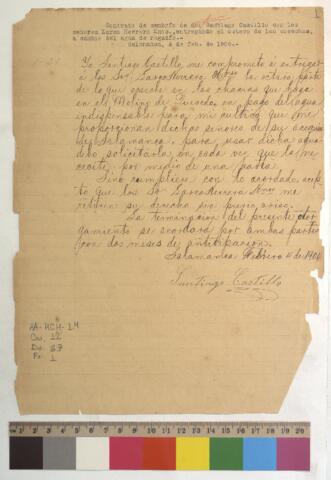 Contrato de zembría de don Santiago Castillo con los
señores Larco Herrera Hnos., entregando el octavo de las cosechas,
a cambio del agua de regadío.-
Salamanca, 4 de Feb. de 1906.-
1
Yo Santiago Castillo, me comprometo á entregar
á los Srs. Larco Herrera Hnos la octava parte
de lo que coseche en las chacras que hago
en el Molino de , en pago del agua
indispensable para mi cultivo que me
proporcionan dichos señores de su acequia
de Salamanca, para usar dicha agua
debo solicitarla en cada vez que la ne-
cesite por medio de una
Sino cumpliese con lo acordado, acep-
to que los Srs Larco Herrera Hnos me
retiren su derecho sin previo aviso.
La terminacion del presente otor-
gamiento se acordará por ambas partes
con dos meses de anticipacion.
Salamanca Febrero 4 de 1906
Santiago Castillo
AA-HCH-1.4
Caj. 12
Do. 87
Fs. 1
1 2 3 4 5 6 7 8 9 10 11 12 13 14 15 16 17 18 19 20